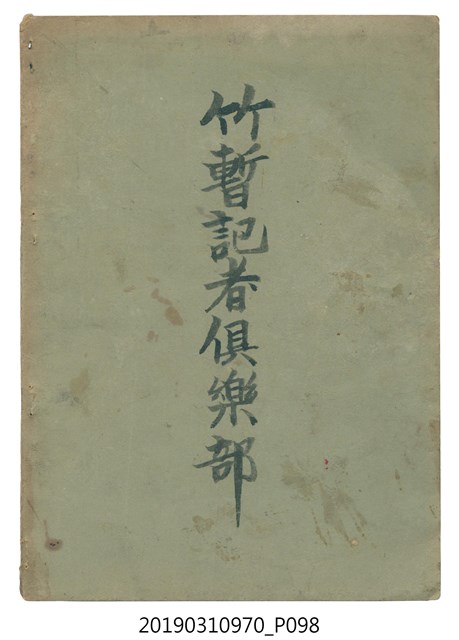 竹暫記者俱樂部
20190310970_P098